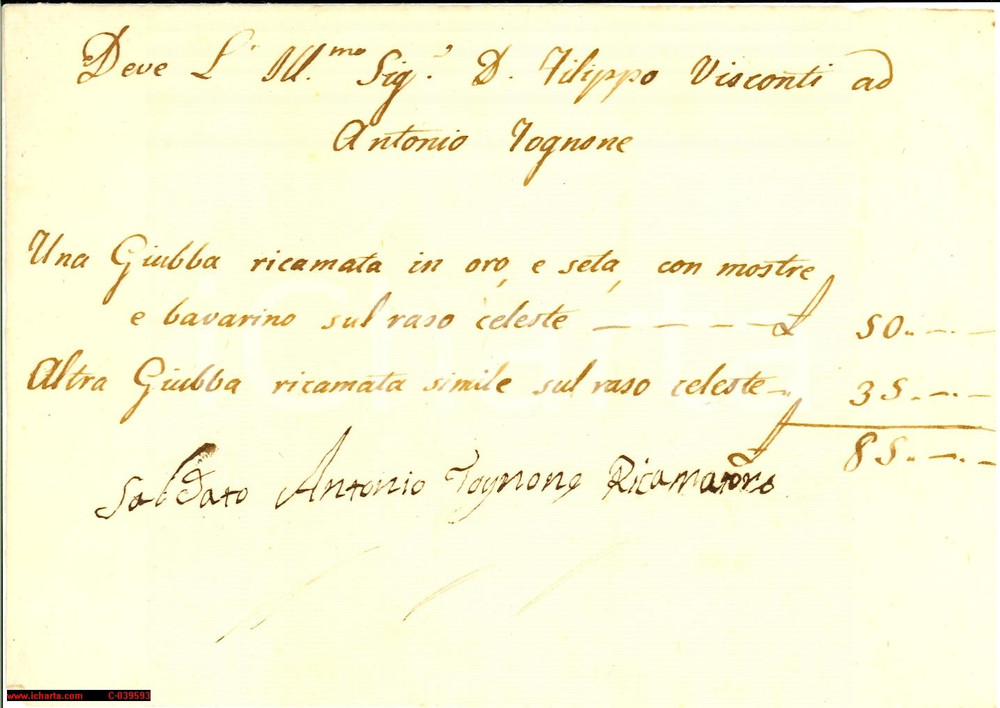 Deve L' Ill.mo Sig.r D. Filippo Visconti ad
Antonio Tognone
Una Giubba ricamata in oro, e seta, con mostre
e bavarino sul raso celeste — — — — £ 50.. —.—
Altra Giubba ricamata simile sul raso celeste —.. 35.—.—
£ 85..—.—
Saldato Antonio Tognone Ricamatore
iCharta
www.icharta.com C-039593